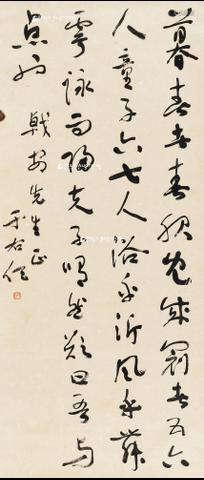 暮春者春服既成冠者五六
人童子六七人浴乎沂風乎舞
雩詠而歸夫子喟然歎曰吾與
點也
先生正
于右任